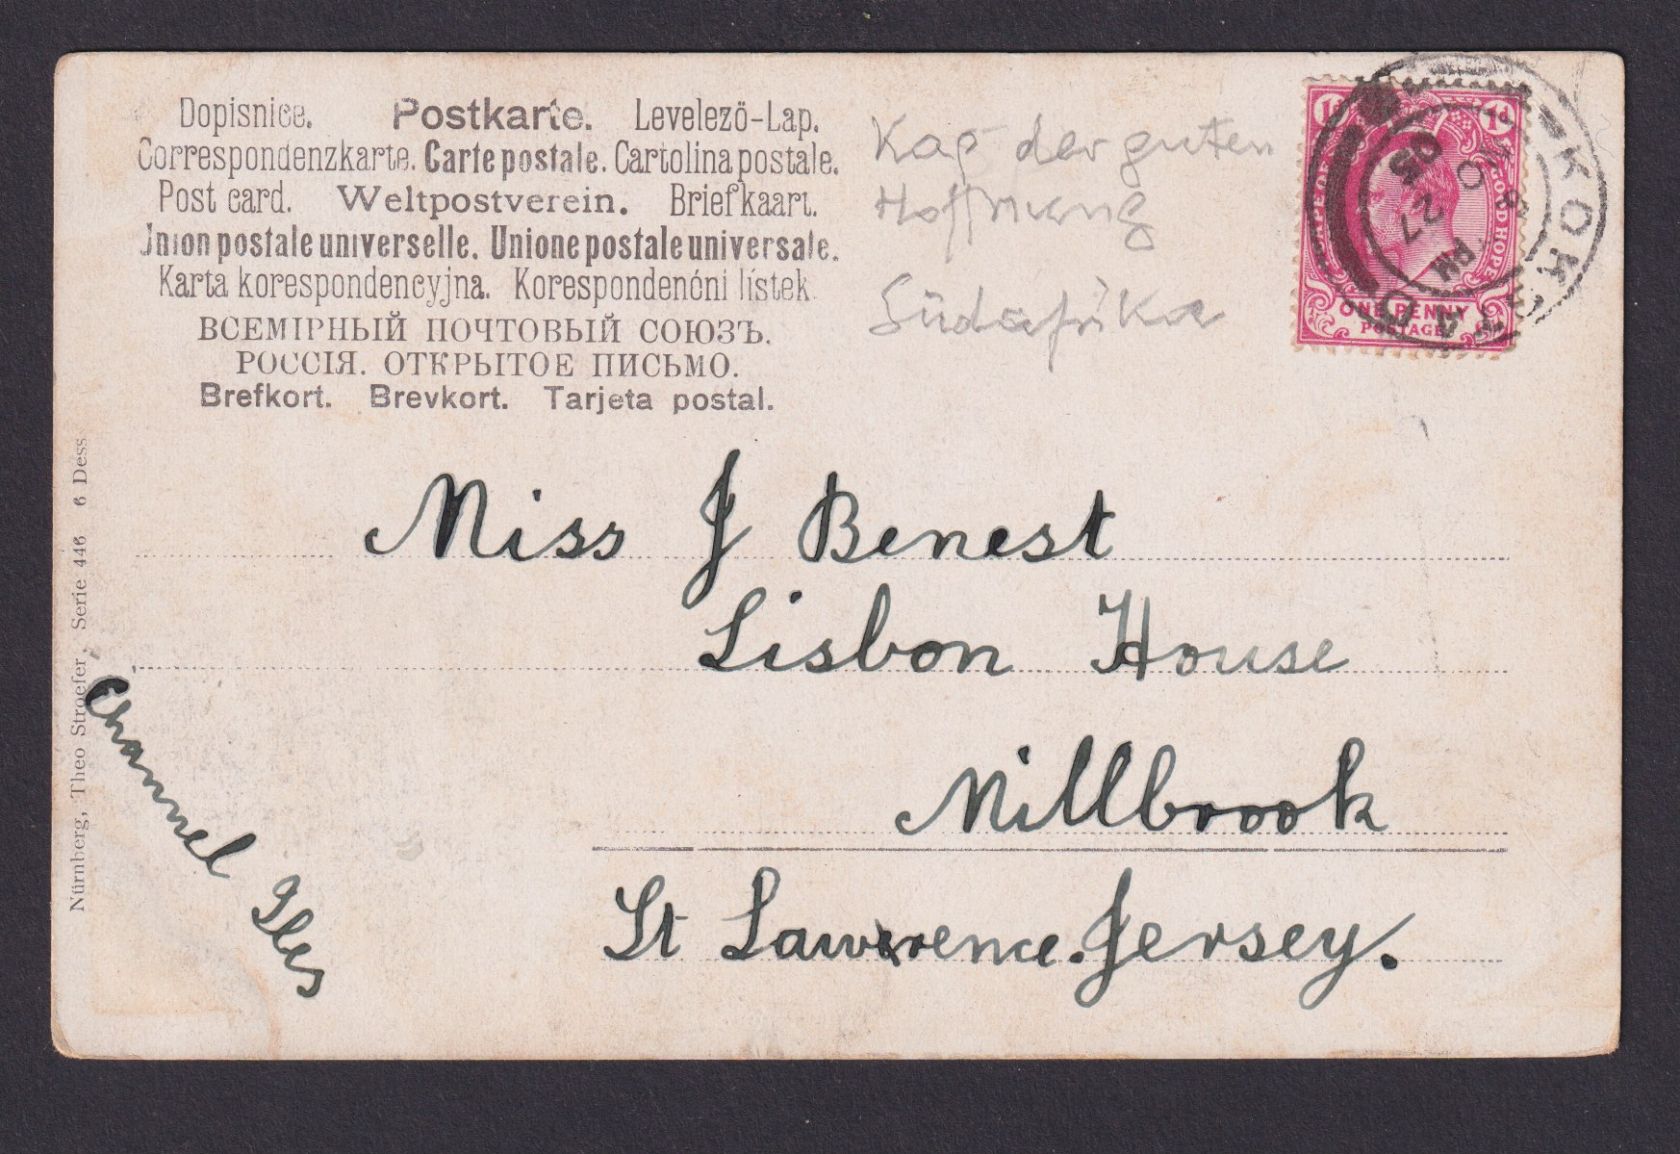 Dopisnice. Postkarte. Levelező-Lap.
Correspondenzkarte. Carte postale. Cartolina postale.
Post card. Weltpostverein. Briefkaart.
Union postale universelle. Unione postale universale.
Karta korespondencyjna. Korespondenční lístek
ВСЕМІРНЫЙ ПОЧТОВЫЙ СОЮЗЪ.
РОССІЯ. ОТКРЫТОЕ ПИСЬМО.
Brefkort. Brevkort. Tarjeta postal.
Kap der guten
Hoffnung
Südafrika
1d 1d
CAPE OF GOOD HOPE
ONE PENNY
POSTAGE
PM
27
05
Miss J Benest
Lisbon House
Millbrook
St Lawrence. Jersey.
Channel Isles
Nürnberg, Theo Stroefer, Serie 446 6 Dess